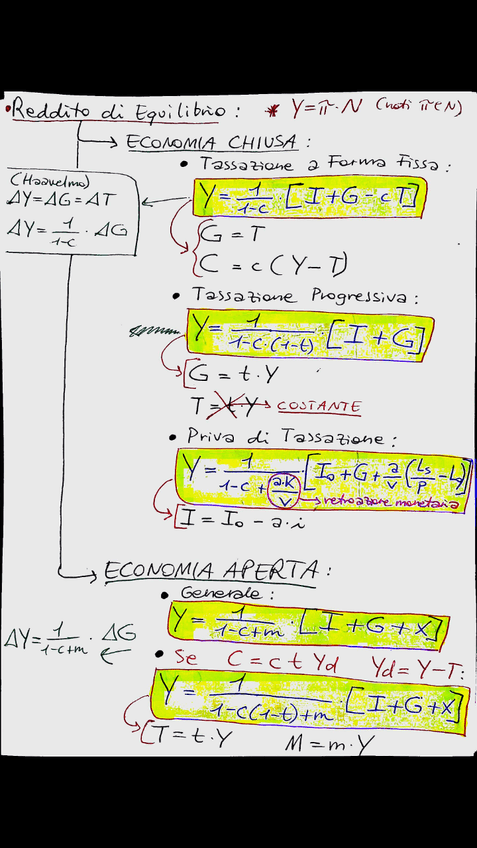 • Reddito di Equilibrio: * Y = π · N (noti π e N)
ECONOMIA CHIUSA:
• Tassazione a Forma Fissa:
(Haavelmo)
ΔY = ΔG = ΔT
ΔY = 1/(1-c) · ΔG
Y = 1/(1-c) [I + G - cT]
G = T
C = c (Y - T)
• Tassazione Progressiva:
Y = 1/(1-c·(1-t)) · [I + G]
G = t · Y
T = t · Y → COSTANTE
• Priva di Tassazione:
Y = 1/(1-c + a·K/v) · [I₀ + G + a/v (Ls/P - L₀)]
→ retroazione monetaria
I = I₀ - a · i
ECONOMIA APERTA:
• Generale:
Y = 1/(1-c+m) · [I + G + X]
ΔY = 1/(1-c+m) · ΔG
• Se C = c t Yd Yd = Y - T:
Y = 1/(1-c(1-t)+m) · [I + G + X]
T = t · Y M = m · Y